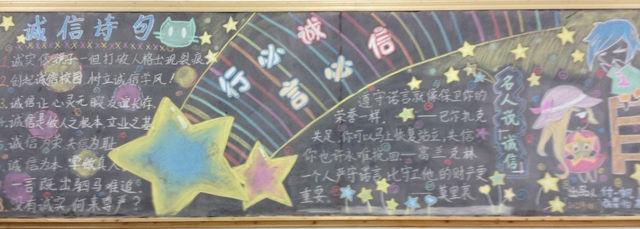 诚信诗句
1.诚实像镜子一但打破人格出现裂痕
2.创建诚信校园 树立诚信学风!
3.诚信让心灵无暇友谊长存.
4.诚信是做人之根本立业之基
5.诚信为荣失信为耻
诚信为本 学做真人
一言既出驷马难追
8.没有诚实何来尊严?
言必诚信
行必
遵守诺言就像保卫你的
荣誉一样 ——巴尔扎克
失足,你可以马上恢复站立,失信
你也许永难挽回——富兰克林
一个人严守诺言比守卫他的财产更
重要 ——莫里哀
名人说“诚信”